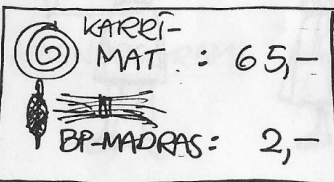 KARRI-
MAT. : 65,-
BP-MADRAS: 2,-